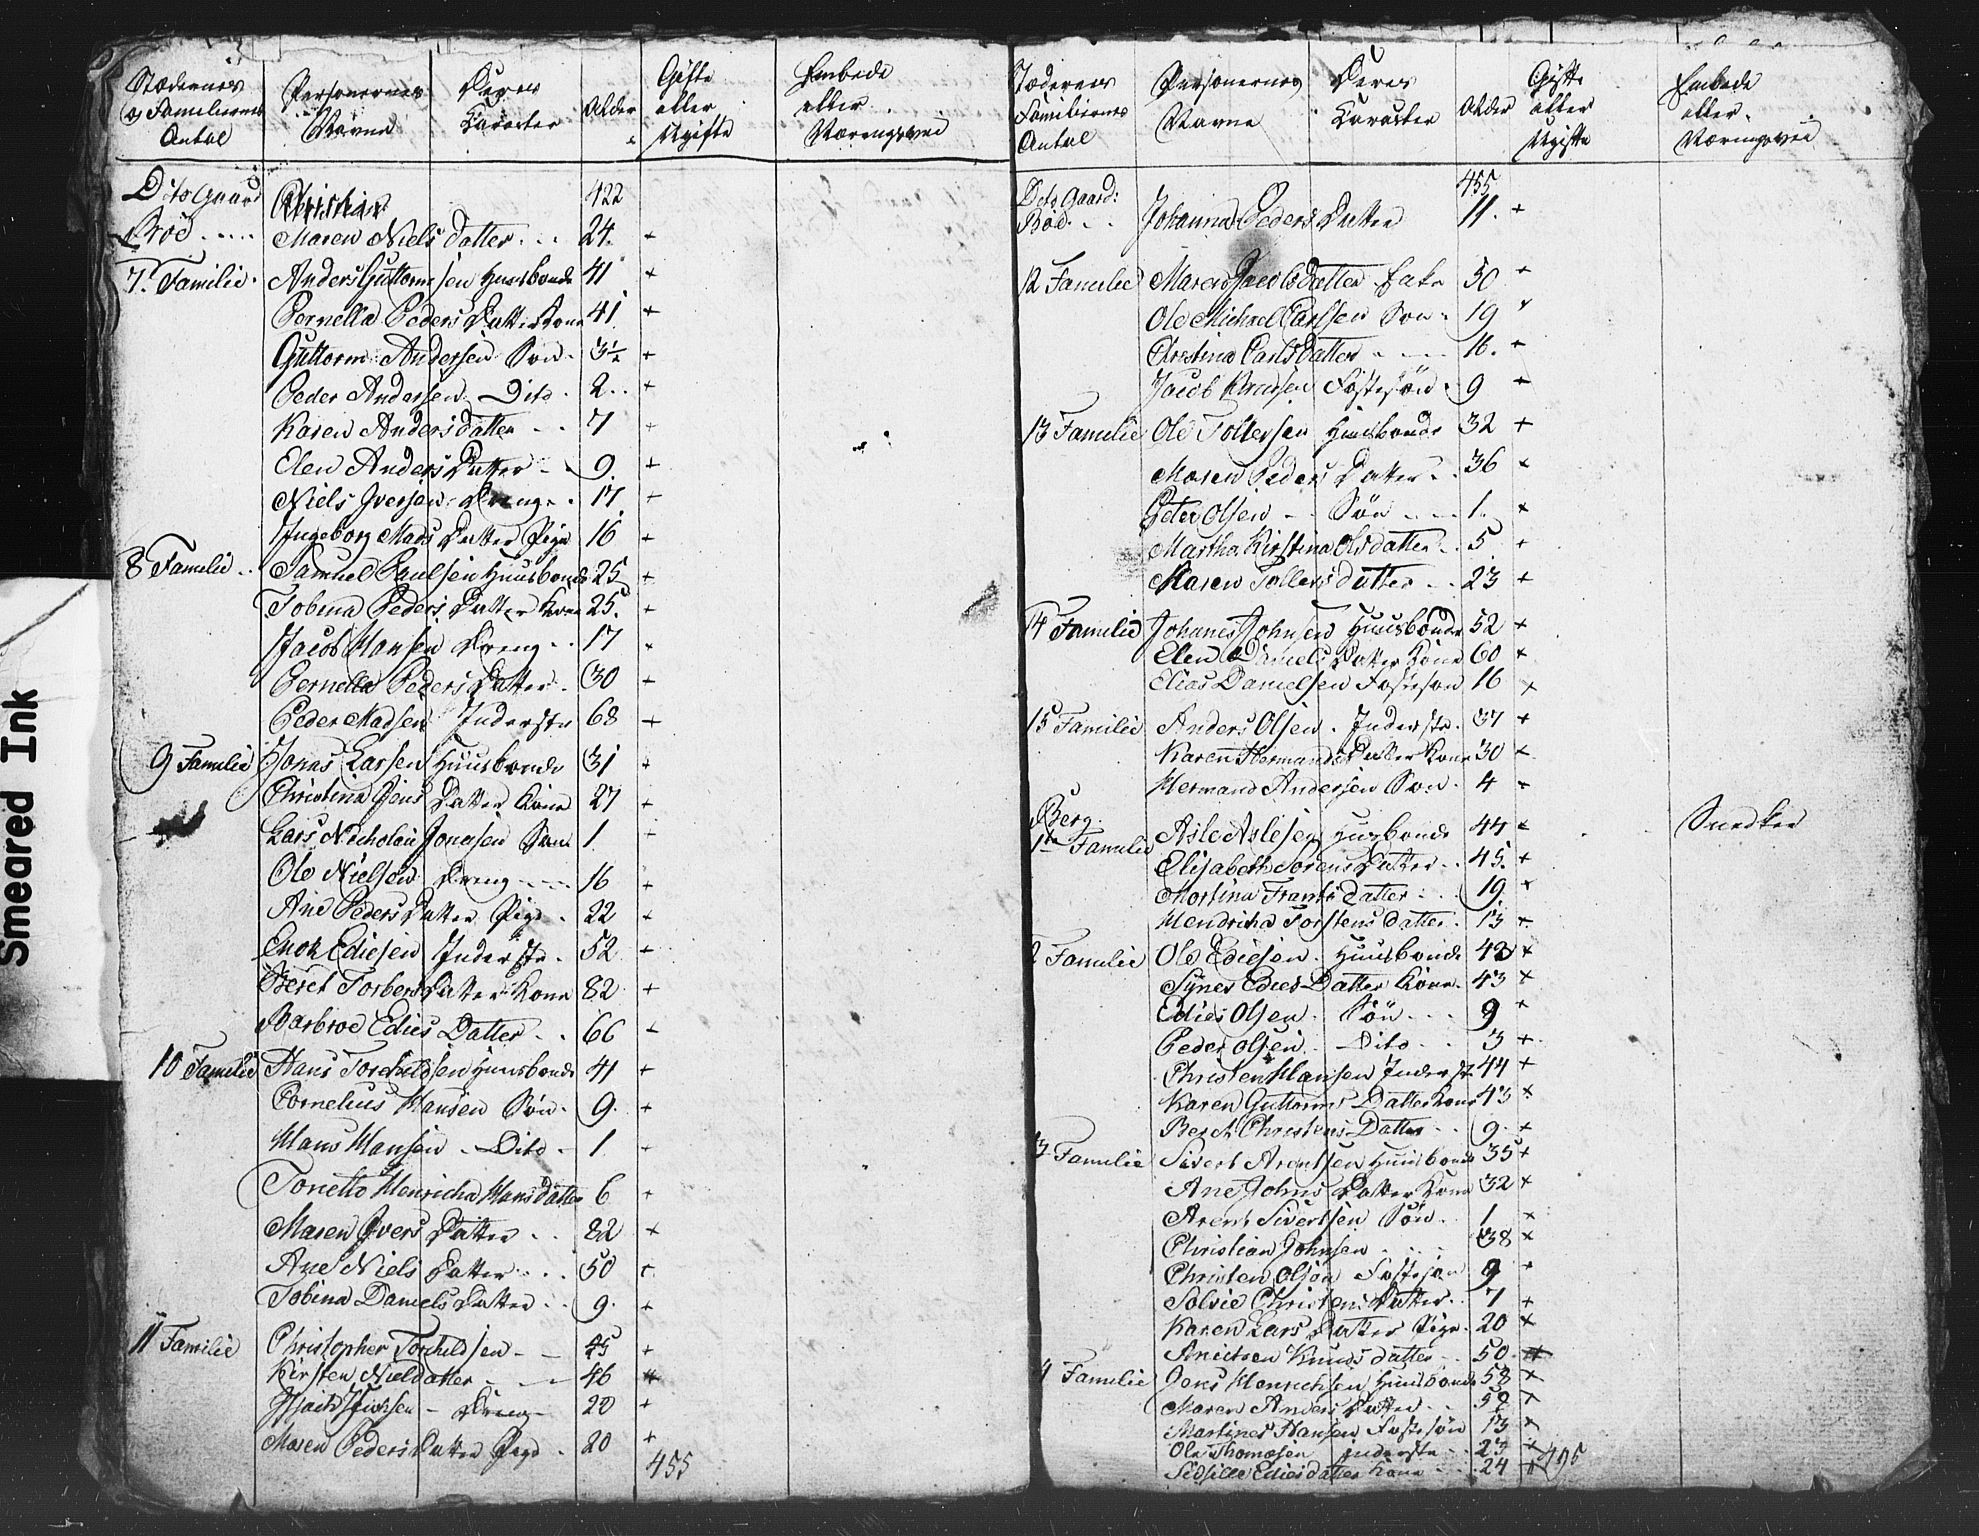 Stædernes
og Familiernes
Antal
Personernes
Navne
Deres
Karacter
Alder
Gifte
eller
Ugifte
Embede
eller
Næringsvei
Dito Gaard 422
Røe Maren Niels Datter 24 +
7. Familie Anders Guttormsen Huusbonde 41 +
Pernella Peders Datter Kone 41 +
Guttorm Andersen Søn 3½ +
Peder Andersen Dito 2 +
Karen Andersdatter 7 +
Elen Anders Datter 9 +
Niels Iversen Dreng 17 +
Ingeborg Mads Datter Pige 16 +
8 Familie Samuel Paulsen Huusbonde 25 +
Tobina Peders Datter Kone 25 +
Jacob Hansen Dreng 17 +
Pernella Peders Datter 30 +
Peder Madsen Inderste 68 +
9 Familie Jonas Larsen Huusbonde 31 +
Christina Jens Datter Kone 27 +
Lars Nicholai Jonasen Søn 1 +
Ole Nielsen Dreng 16 +
Ane Peders Datter Pige 22 +
Enok Ediesen Inderste 52 +
Beret Torbers Datter Kone 82 +
Barbroe Edies Datter 66 +
10 Familie Hans Torchildsen Huusbonde 41 +
Cornelius Hansen Søn 9 +
Hans Hansen Dito 1 +
Tonetto Henricha Hans Datter 6 +
Maren Ivers Datter 82 +
Ane Niels Datter 50 +
Tobina Daniels Datter 9 +
11 Familie Christopher Torchildsen 45 +
Kirsten Nielsdatter 46 +
Dreng 20 +
Maren Peders Datter Pige 20 +
455
Stædernes
Familiernes
Antal
Personernes
Navne
Deres
Karacter
Alder
Gifte
eller
Ugifte
Embede
eller
Næringsvei
Dito Gaard: 455
Røe Johanna Peders Datter 11 +
12 Familie Maren Jacobs Datter Enke 50 +
Ole Michael Carlsen Søn 19 +
Christina Carls Datter 16 +
Jacob Fostesøn 9 +
13 Familie Ole Tollersen Huusbonde 32 +
Maren Peders Datter 36 +
Peter Olsen Søn 1 +
Martha Kirstina Olsdatter 5 +
Maren Tollers datter 23 +
14 Familie Johanes Johnsen Huusbonde 52 +
Elen Daniels Datter Kone 60 +
Elias Danielsen Fostesøn 16 +
15 Familie Anders Olsen Inderste 37 +
Karen Hermands Datter Kone 30 +
Hermand Andersen Søn 4 +
Berg
1ste Familie Asle Aslesen Huusbonde 44 + Snedker
Elisabeth Sørens Datter 45 +
Mortina Frants Datter 19 +
Hendricha Torstens Datter 13 +
2 Familie Ole Ediesen Huusbonde 42 +
Synes Edies Datter Kone 43 +
Edies Olsen Søn 9 +
Peder Olsen Dito 3 +
Christen Hansen Inderst 44 +
Karen Guttorms Datter Kone 43 +
Berit Christens Datter 9 +
3 Familie Sivert Arentsen Huusbonde 35 +
Ane Johns Datter Kone 32 +
Arent Sivertsen Søn 1 +
Christian Johnsen 38 +
Christen Olsen Fostesøn 9 +
Solvie Christens Datter 7 +
Karen Lars Datter Pige 20 +
Knuds datter 50 +
4 Familie Jens Henrichsen Huusbonde 58 +
Maren Anders Datter 52 +
Martines Hansen Fostesøn 13 +
Ole Thomesen Inderste 23 +
Sidselle Edies datter Kone 24 + 495
Smeared Ink